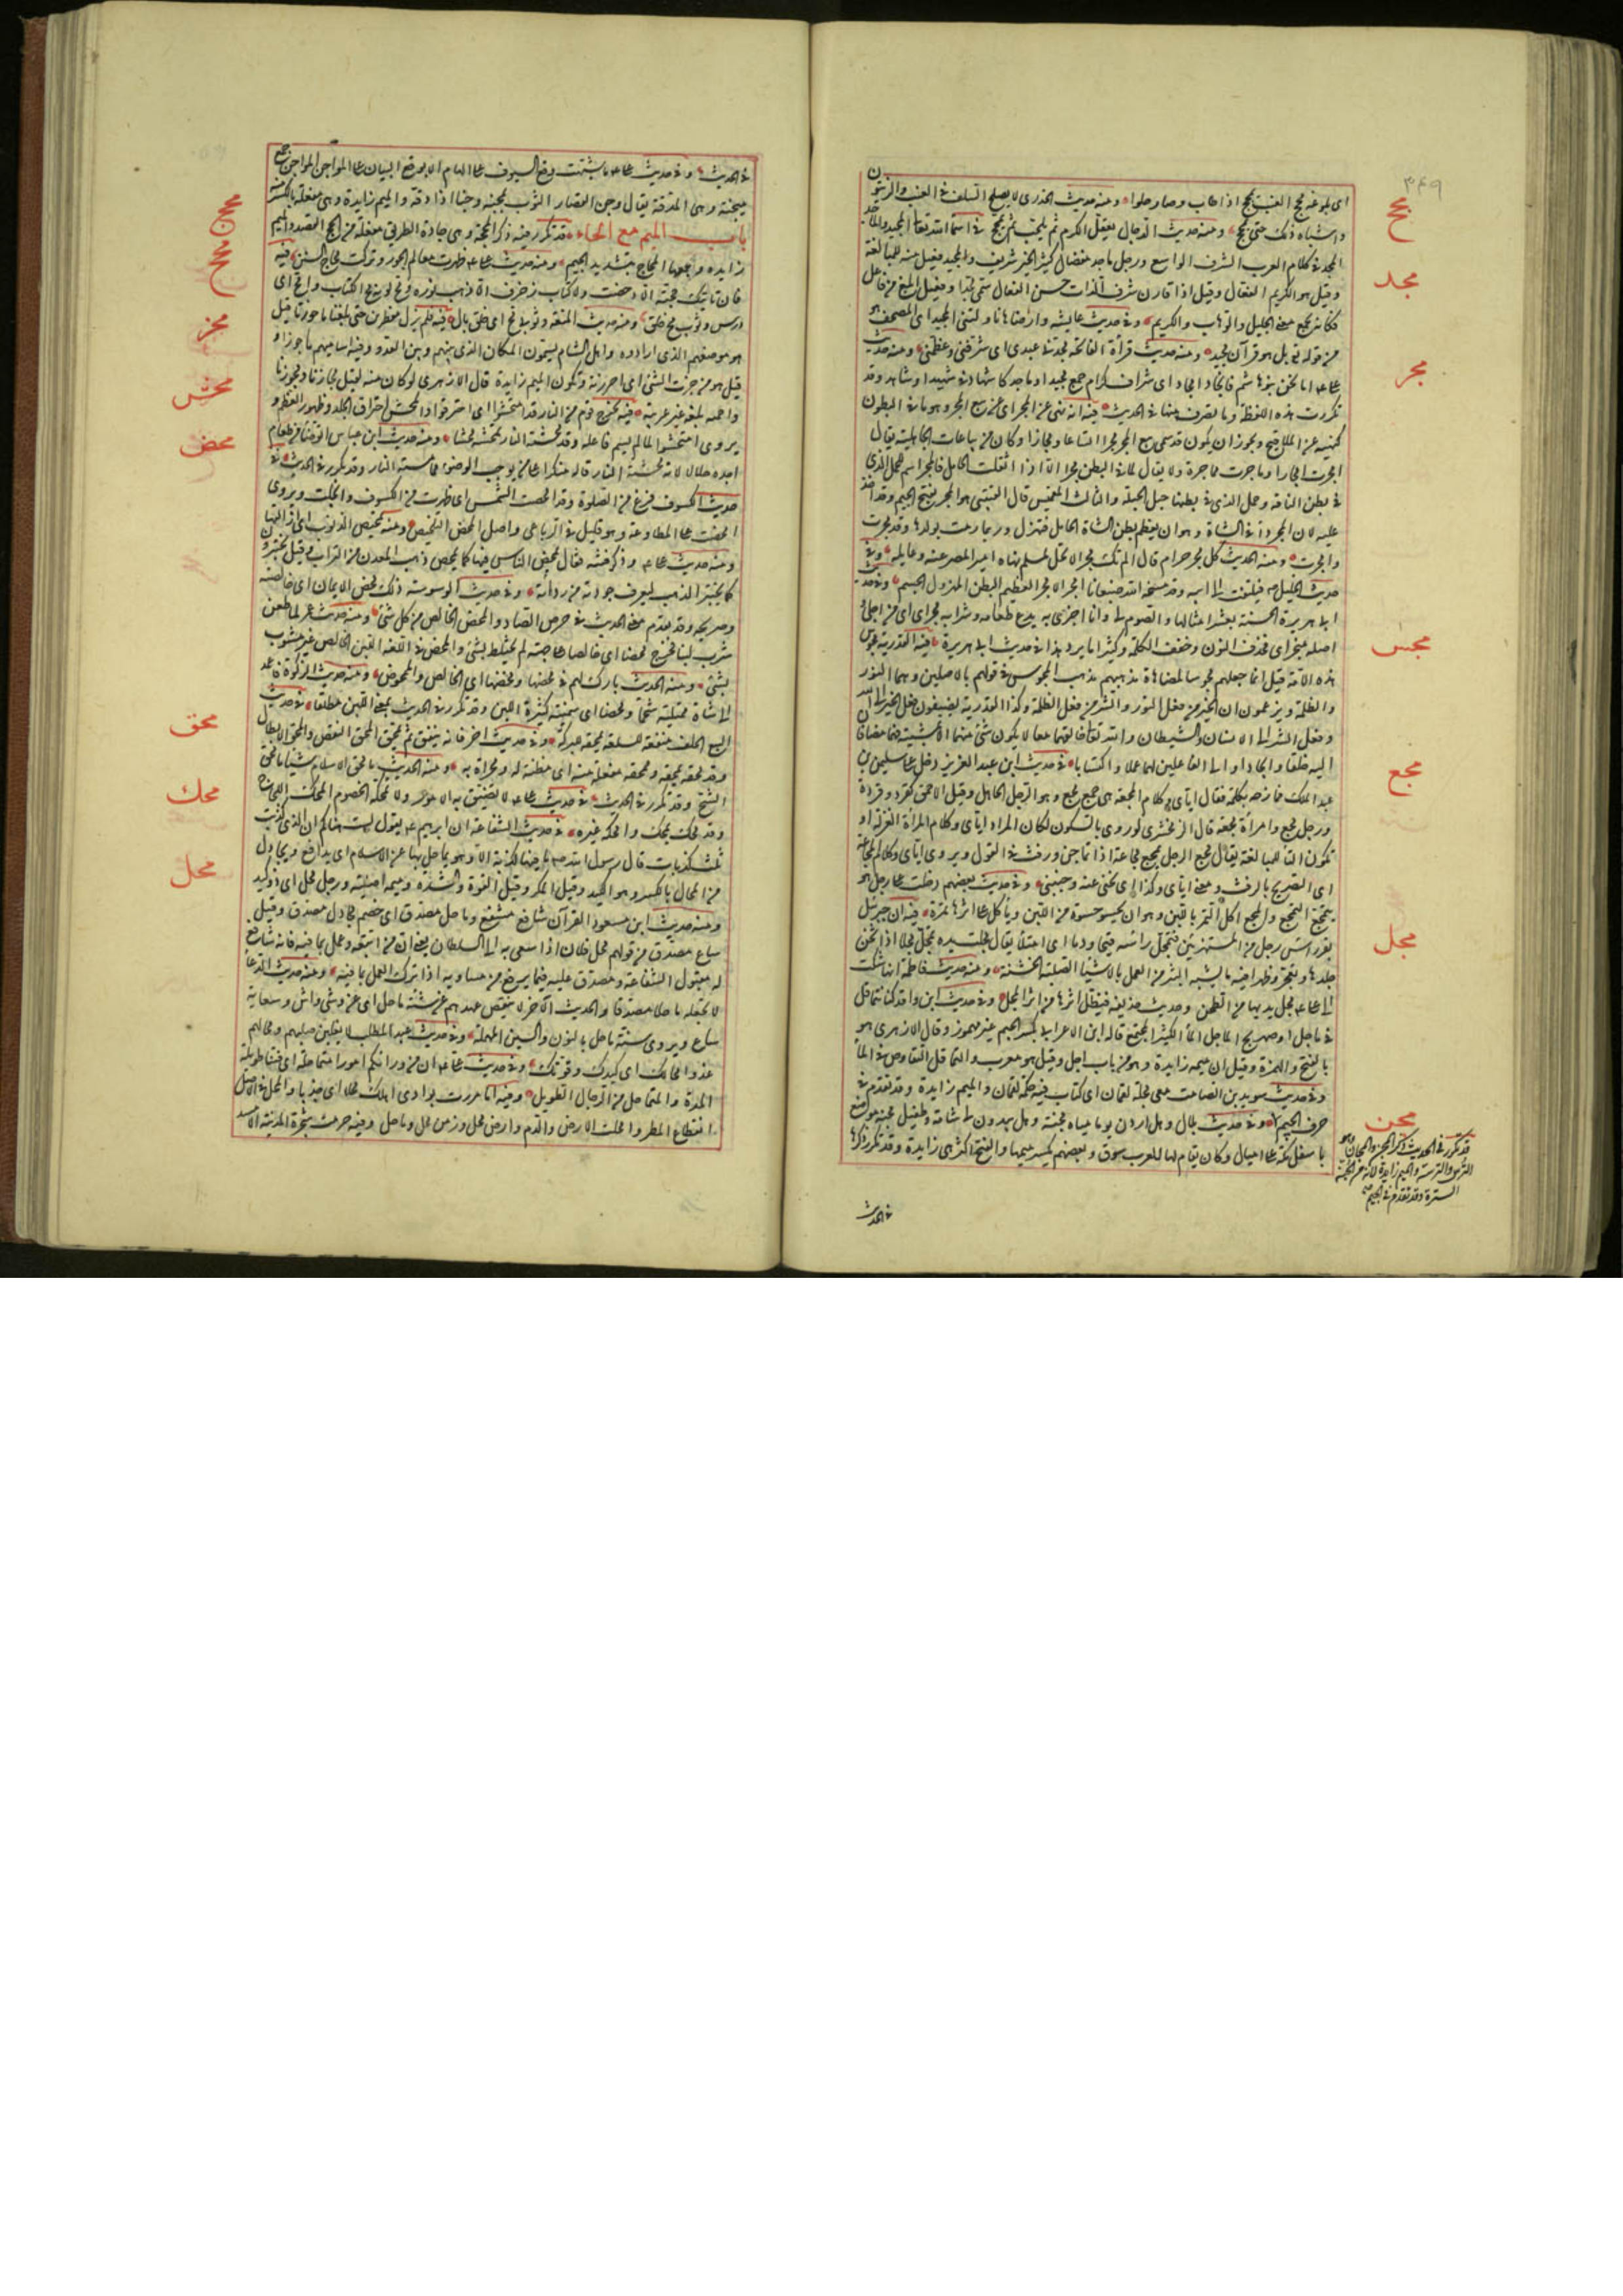 ٣٤٩
مجج
اى بلوغه مجج العنب يمجج اذا طاب وصار حلوا ومنه حديث الخدرى لا يصلح السلف فى العنب والزيتون
واشباه ذلك حتى يمجج ومنه حديث الدجال يعقل الكرم ثم يكحب ثم يمجج فى اسماء الله تعالى المجيد والماجد
مجد
المجد فى كلام العرب الشرف الواسع ورجل ماجد مفضال كثير الخير شريف والمجيد فعيل منه للمبالغة
وقيل هو الكريم الفعال وقيل اذا قارن شرف الذات حسن الفعال سمى مجدا وفعيل ابلغ من فاعل
فكانه يجمع معنى الجليل والوهاب والكريم وفى حديث عايشة ناولينى المجيد اى المصحف هو
من قوله تعالى بل هو قرآن مجيد ومنه حديث قراءة الفاتحة مجدنى عبدى اى شرفنى وعظمنى ومنه حديث
على اما نحن بنو هاشم فانجاد امجاد اى شراف كرام جمع مجيد او ماجد كاشهاد فى شهيد او شاهد وقد
مجر
تكررت هذه اللفظة وما تصرف منها فى الحديث فيه انه نهى عن المجر اى عن بيع المجر وهو ما فى البطون
كنهيه عن الملاقيح ويجوز ان يكون قد سمى بيع المجر مجرا اتساعا ومجازا وكان من بياعات الجاهلية يقال
امجرت امجارا وماجرت مماجرة ولا يقال لما فى البطن مجر الا اذا اثقلت الحامل فالمجر اسم للحمل الذى
فى بطن الناقة وحمل الذى فى بطنها حبل الحبلة والثالث الغميس قال القتيبى هو المجر بفتح الجيم وقد اخذ
عليه لان المجر داء فى الشاة وهو ان يعظم بطن الشاة الحامل فتهزل وربما رمت بولدها وقد مجرت
وامجرت ومنه الحديث كل مجر حرام قال
حديث الخليل فيلتفت الى ابيه وقد مسخه الله ضبعانا امجر الامجر العظيم البطن المهزول الجسم وفى حديث
ابى هريرة الحسنة بعشر امثالها والصوم لى وانا اجزى به يدع طعامه وشرابه مجراى اى من اجلى
اصله من جراى فحذف النون وخفف الكلمة وكثيرا ما يرد هذا فى حديث ابى هريرة فيه القدرية مجوس
مجس
هذه الامة قيل انما جعلهم مجوسا لمضاهاة مذهبهم مذهب المجوس فى قولهم بالاصلين وهما النور
والظلمة ويزعمون ان الخير من فعل النور والشر من فعل الظلمة وكذا القدرية يضيفون فعل الخير الى الله
وفعل الشر الى الانسان والشيطان والله تعالى خالقهما معا لا يكون شئ منهما الا بمشيته فهما مضافان
اليه خلقا وايجادا والى الفاعلين لهما عملا واكتسابا فى حديث ابن عبد العزيز دخل على سليمن بن
مجع
عبد الملك فمازحه بكلمة فقال اياى وكلام المجعة هى جمع مجع وهو الرجل الجاهل وقيل الاحمق كقرد وقردة
ورجل مجع وامرأة مجعة قال الزمخشرى لو روى بالسكون لكان المراد اياى وكلام المرأة الغزلة او
تكون التاء للمبالغة يقال مجع الرجل يمجع مجاعة اذا تماجن ورفث فى القول ويروى اياى وكلام المجاعة
اى التصريح بالرفث ومعنى اياى وكذا اى نحنى عنه وجنبنى وفى حديث بعضهم دخلت على رجل هو
يتمجع التمجع والمجع اكل التمر باللبن وهو ان يحسو حسوة من اللبن ويأكل على اثرها تمرة فيه ان جبرئيل
مجل
نقر رأس رجل من المستهزئين فتمجل رأسه قيحا ودما اى امتلأ يقال مجلت يده تمجل مجلا اذا ثخن
جلدها وتعجر وظهر فيه ما يشبه البثر من العمل بالاشياء الصلبة الخشنة ومنه حديث فاطمة انها شكت
الى على مجل يديها من الطحن وحديث حذيفة فيظل اثرها مثل اثر المجل وفى حديث ابن واقد كنا نتماقل
فى ماجل او صهريج الماجل الماء الكثير المجتمع قاله ابن الاعرابى بكسر الجيم غير مهموز وقال الازهرى هو
بالفتح والهمزة وقيل ان ميمه زايدة وهو من باب اجل وقيل هو معرب والتماقل التغاوص فى الماء
وفى حديث سويد بن الصامت معى مجلة لقمان اى كتاب فيه حكمة لقمان والميم زايدة وقد تقدم فى
حرف الجيم وفى حديث بلال وهل اردن يوما مياه مجنة وهل يبدون لى شامة وطفيل مجنة موضع
مجن
باسفل مكة على اميال وكان يقام بها للعرب سوق وبعضهم يكسر ميمها والفتح اكثر وهى زايدة وقد تكرر ذكرها
قد تكرر فى الحديث ذكر المجن والمجان وهو
الترس والترسة والميم زايدة لانه من الجنة
السترة وقد تقدم فى الجيم
فى الحديث
فى الحديث وفى حديث على ما شبهت وقع السيوف على الهام الا بوقع البيازر على المواجن المواجن جمع
ميجنة وهى المدقة يقال وجن القصار الثوب يجنه وجنا اذا دقه والميم زايدة وهى مفعلة بالكسر منه
باب الميم مع الحاء قد تكرر فيه ذكر المحجة وهى جادة الطريق مفعلة من الحج القصد والميم
محج
زايدة وجمعها المحاج بتشديد الجيم ومنه حديث على ظهرت معالم الجور وتركت محاج السنن فيه
محح
فان تأتيك حجة الا دحضت ولا كتاب زخرف الا ذهب نوره ومح لونه مح الكتاب وامح اى
درس وثوب مح خلق ومنه حديث المتعة وثوبى مح اى خلق بال فيه فلم نزل مفطرين حتى بلغنا ماحوزنا قيل
محز
هو موضعهم الذى ارادوه واهل الشام يسمون المكان الذى بينهم وبين العدو وفيه اساميهم ماحوزا و
قيل هو من حزت الشئ اى احرزته وتكون الميم زايدة قال الازهرى لو كان منه لقيل محازنا ومحوزنا
محش
واحسبه بلغة غير عربية فيه يخرج قوم من النار قد امتحشوا اى احترقوا والمحش احتراق الجلد وظهور العظم و
يروى امتحشوا لما لم يسم فاعله وقد محشته النار تمحشه محشا ومنه حديث ابن عباس اتوضأ من طعام
اجده حلالا لانه محشته النار قاله منكرا على من يوجب الوضوء مما مسته النار وقد تكرر فى الحديث فى
محص
حديث الكسوف فرغ من الصلوة وقد امحصت الشمس اى ظهرت من الكسوف وانجلت ويروى
امحصت على المطاوعة وهو قليل فى الرباعى واصل المحص التخليص ومنه تمحيص الذنوب اى ازالتها
ومنه حديث على وذكر فتنة فقال يمحص الناس فيها كما يمحص ذهب المعدن من التراب وقيل يختبرون
كما يختبر الذهب ليعرف جودته من ردائته وفى حديث الوسوسة ذلك محض الايمان اى خالصه
وصريحه وقد تقدم معنى الحديث فى حرف الصاد والمحض الخالص من كل شئ ومنه حديث عمر لما طعن
شرب لبنا فخرج محضا اى خالصا على جهته لم يختلط بشئ والمحض فى اللغة اللبن الخالص غير مشوب
بشئ ومنه الحديث بارك لهم فى محضها ومخضها اى الخالص والممخوض ومنه حديث الزكوة فاعمد
الى شاة ممتلئة شحما ومحضا اى سمينة كثيرة اللبن وقد تكرر فى الحديث بمعنى اللبن مطلقا فى حديث
محق
البيع الحلف منفقة للسلعة ممحقة للبركة وفى حديث اخر فانه ينفق ثم يمحق المحق النقص والمحو والابطال
وقد محقه يمحقه وممحقة مفعلة منه اى مظنة له ومحراة به ومنه الحديث ما محق الاسلام شيئا ما محق
الشح وقد تكرر فى الحديث فى حديث على لا تضيق به الامور ولا تمحكه الخصوم المحك اللجاج
محك
وقد محك يمحك وامحكه غيره فى حديث الشفاعة ان ابرهيم يقول لست هناكم انا الذى كذبت
ثلث كذبات قال رسول الله ما فيها كذبة الا وهو يماحل بها عن الاسلام اى يدافع ويجادل
محل
من المحال بالكسر وهو الكيد وقيل المكر وقيل القوة والشدة وميمه اصلية ورجل محل اى ذو كيد
ومنه حديث ابن مسعود القرآن شافع مشفع وماحل مصدق اى خصم مجادل مصدق وقيل
ساع مصدق من قولهم محل فلان اذا سعى به الى السلطان يعنى ان من اتبعه وعمل بما فيه فانه شافع
له مقبول الشفاعة ومصدق عليه فيما يرفع من مساويه اذا ترك العمل بما فيه ومنه حديث الدعاء
لا تجعله ماحلا مصدقا والحديث الآخر لا ينقض عهدهم عن شية ماحل اى عن وشى واش وسعاية
ساع ويروى سنة ماحل بالنون والسين المهملة وفى حديث عبد المطلب لا يغلبن صليبهم ومحالهم
غدوا محالك اى كيدك وقوتك وفى حديث على ان من ورائكم امورا متماحلة اى فتنا طويلة
المدة والمتماحل من الرجال الطويل وفيه اما مررت بوادى اهلك محلا اى جدبا والمحل فى الاصل
انقطاع المطر وامحلت الارض والقوم وارض محل وزمن محل وماحل وفيه حرمت شجرة المدينة الا مسد